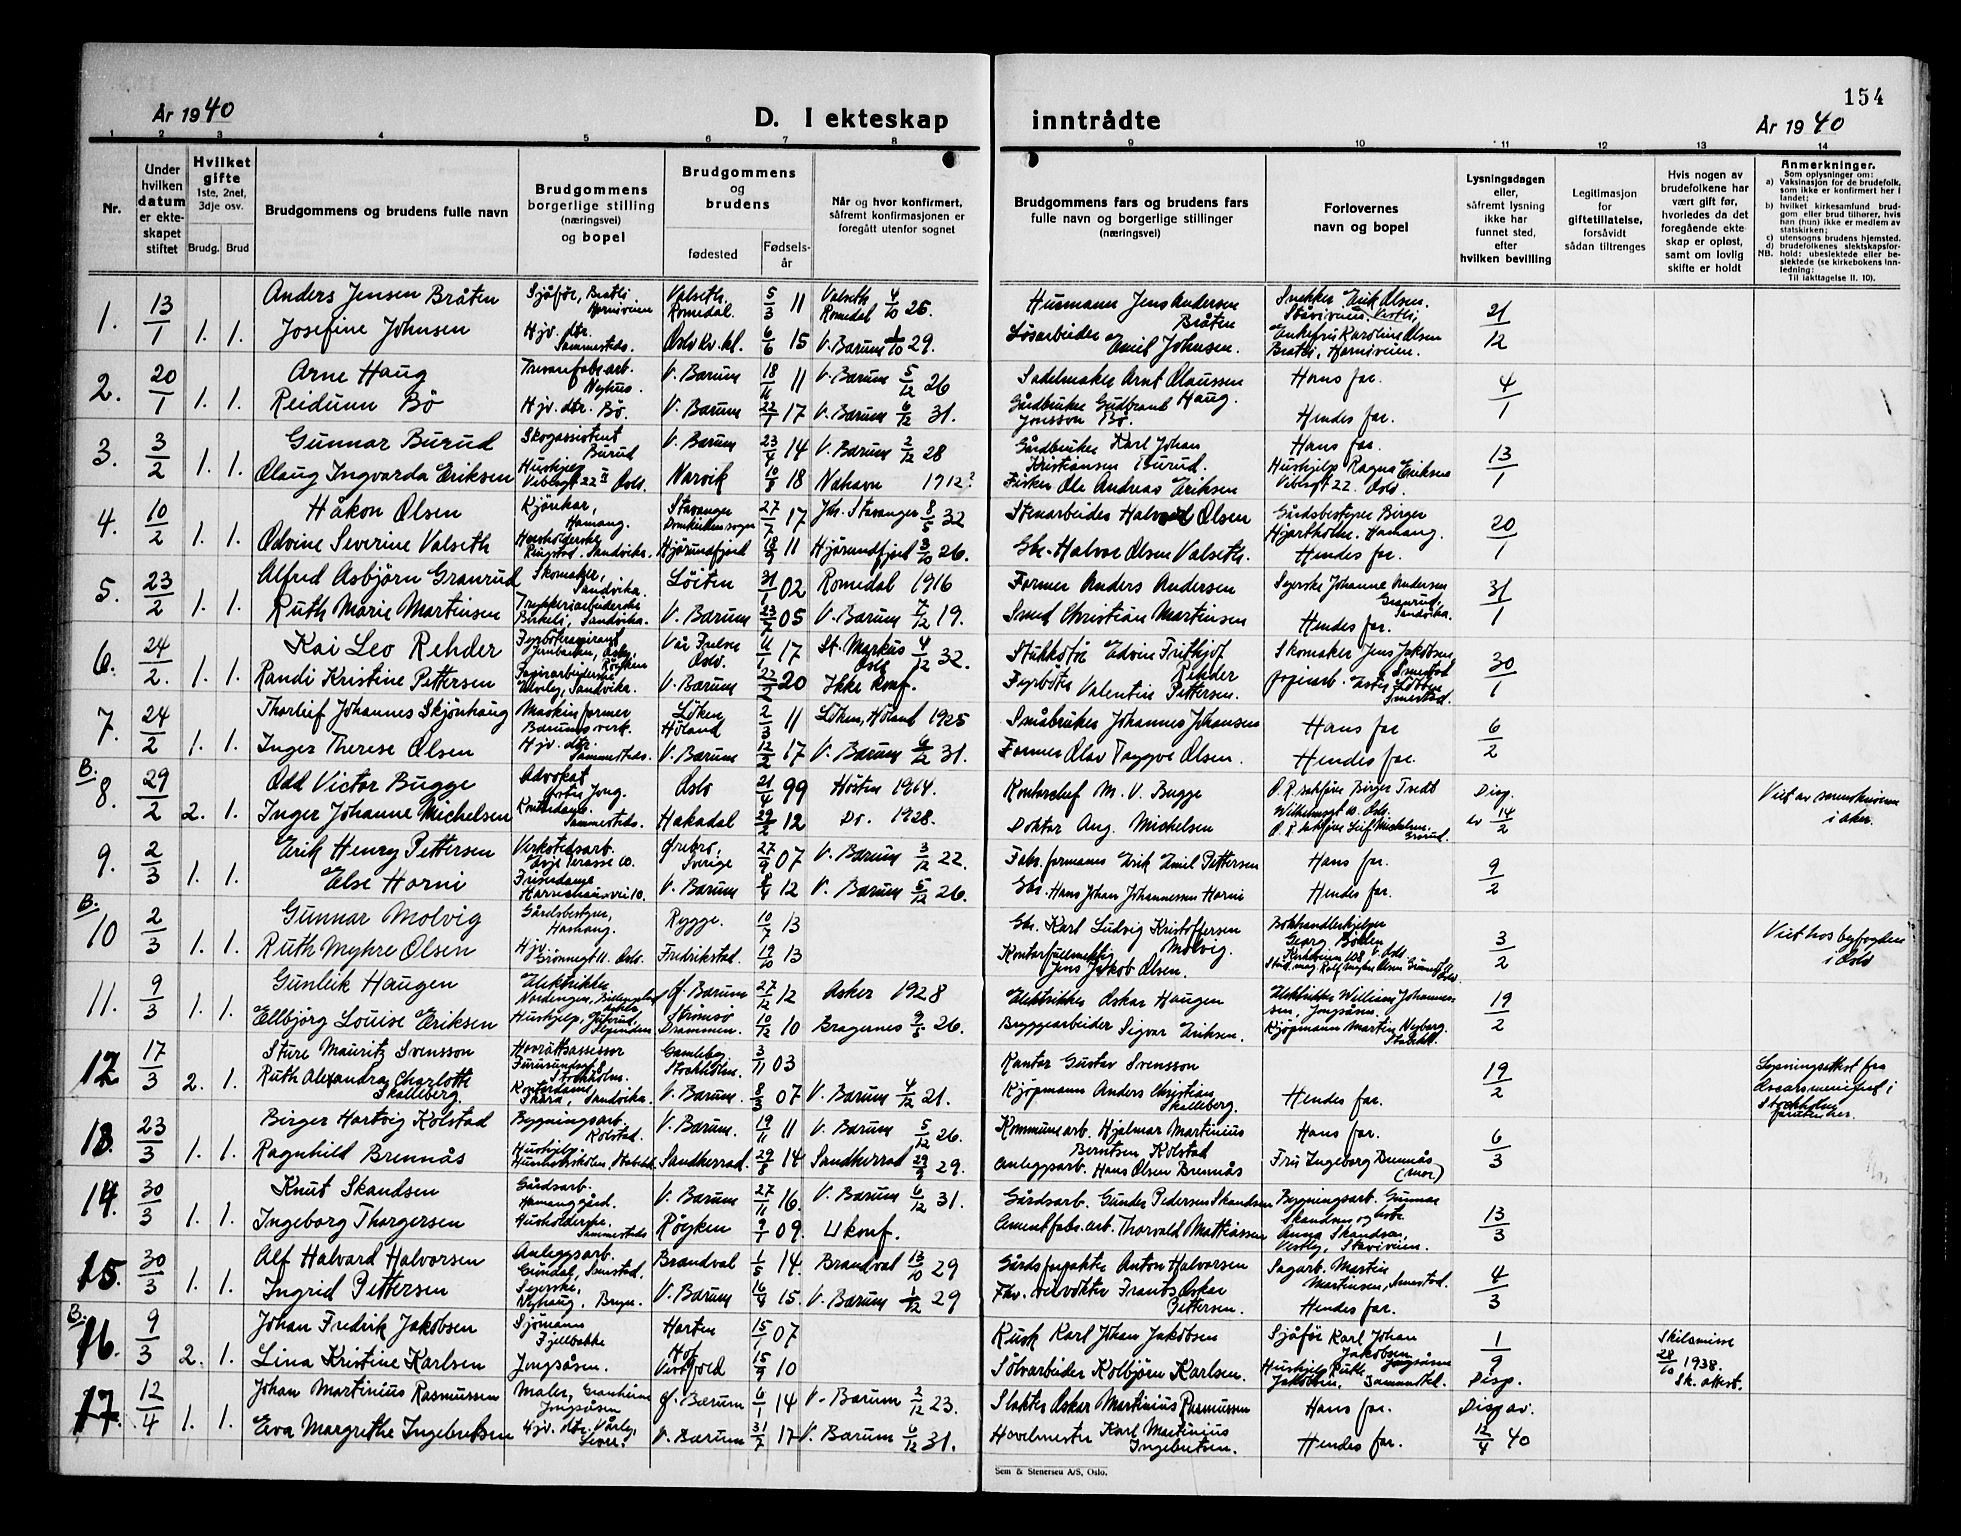 154
År 1940
D. I ekteskap inntrådte
År 1940
1 2 3 4 5 6 7 8 9 10 11 12 13 14
Nr.
Under hvilken datum er ekteskapet stiftet
Hvilket gifte 1ste, 2net, 3dje osv.
Brudg. Brud
Brudgommens og brudens fulle navn
Brudgommens borgerlige stilling (næringsvei) og bopel
Brudgommens og brudens
fødested
Fødselsår
Når og hvor konfirmert, såfremt konfirmasjonen er foregått utenfor sognet
Brudgommens fars og brudens fars fulle navn og borgerlige stillinger (næringsvei)
Forlovernes navn og bopel
Lysningsdagen eller, såfremt lysning ikke har funnet sted, efter hvilken bevilling
Legitimasjon for giftetillatelse, forsåvidt sådan tiltrenges
Hvis nogen av brudefolkene har vært gift før, hvorledes da det foregående ekteskap er opløst, samt om lovlig skifte er holdt
Anmerkninger.
Som oplysninger om:
a) Vaksinasjon for de brudefolk, som ikke er konfirmert her i landet;
b) hvilket kirkesamfund brudgom eller brud tilhører, hvis han (hun) ikke er medlem av statskirken;
c) utensogns brudens hjemsted.
d) brudefolkenes slektskapsforhold: ubeslektede eller beslektede (se kirkebokens innledning:
NB. Til iakttagelse II. 10).
1. 13/1 1. 1. Anders Jensen Bråten Sjåfør, Bratli Horniveien Valseth Romedal. 5/3 11 Valseth Romedal 4/10 25. Husmann Jens Andersen Bråten Snekker Erik Olsen. Staviveien, Vestli, 21/12
Josefine Johnsen Hjv. dtr. Sammesteds. Oslo kv. kl. 6/6 15 V. Bærum 1/10 29. Løsarbeider Emil Johnsen. Enkefru Karoline Olsen Bratli, Horniveien.
2. 20/1 1. 1. Arne Haug Nyhus. V. Bærum 18/11 11 V. Bærum 5/12 26 Sadelmaker Arnt Olaussen Haug. Hans far. 4/1
Reidunn Bö Hjv. dtr. Bö. V. Bærum 22/7 17 V. Bærum 6/12 31. Gårdbruker Gudbrand Jonsson Bö. Hendes far.
3. 3/2 1. 1. Gunnar Burud Skogassistent Burud V. Bærum 23/4 14 V. Bærum 2/12 28 Gårdbruker Karl Johan Kristiansen Burud. Hans far. 13/1
Olaug Ingvarda Eriksen Hushjelp Vibesgt 22 II Oslo. Narvik 10/8 18 Nøhavn 1912? Fisker Ole Andreas Eriksen Hushjelp Ragna Eriksen Vibesgt 22. Oslo.
4. 10/2 1. 1. Håkon Olsen Kjörekar, Hamang. Stavanger Domkirkens sogn 27/7 17 Joh. Stavanger 8/5 32 Stenarbeider Halvard Olsen Gårdsbestyrer Birger Hjartholm, Hamang. 20/1
Odvine Severine Valseth Husholderske Ringstad. Sandvika. Hjörundfjord 18/9 11 Hjörundfjord 3/10 26. Gbr. Halvor Olsen Valseth. Hendes far.
5. 23/2 1. 1. Alfred Asbjörn Granrud Skomaker, Sandvika. Löiten 31/1 02 Romedal 1916 Former Anders Andersen Syerske Johanne Andersen Granrud, Sandvika. 31/1
Ruth Marie Martinsen Trykkeriarbeiderske Birkeli, Sandvika. V. Bærum 23/7 05 V. Bærum 7/12 19. Smed Christian Martinsen Hendes far.
6. 24/2. 1. 1. Kai Leo Rehder Vår Frelser Oslo. 11/1 17 St. Markus Oslo 4/12 32. Edvin Frithjof Rehder Skomaker Jens Jakobsen 30/1
Randi Kristine Pettersen Sandvika. V. Bærum 22/2 20 Ikke konf. Fyrböter Valentin Pettersen.
7. 24/2 1. 1. Thorlief Johannes Skjönhaug Maskinformer Bærums verk. Löken Höland 2/3 11 Löken, Höland 1925 Småbruker Johannes Johansen Hans far 6/2
Inger Therese Olsen Hjv. dtr. Sammesteds. V. Bærum 12/2 17 V. Bærum 6/12 31. Former Olav Trygve Olsen. Hendes far.
B. 8. 29/2 2. 1. Odd Victor Bugge Advokat Oslo 21/4 99 Hösten 1914. Kontorchef M. V. Bugge O.R. sakförer Birger Tvedt Disp. Viet av sorenskriveren i Aker.
Inger Johanne Michelsen Kontordame Sammesteds. Hakadal 29/2 12 Do. 1928. Doktor Aug. Michelsen av 14/2
9. 2/3 1. 1. Erik Henry Pettersen Verkstedsarb. Örebro, Sverige 27/9 07 V. Bærum 3/12 22. Fabr. formann Erik Emil Pettersen Hans far. 9/2
Else Horni Frisördame V. Bærum 8/4 12 V. Bærum 5/12 26. Gbr. Hans Johan Johannessen Horni Hendes far.
B. 10 2/3 1. 1. Gunnar Molvig Gårdsbestyrer, Hamang. Rygge. 10/7 13 Gbr. Karl Ludvig Kristoffersen Molvig. Bokhandlerhjelper Georg 3/2 Viet hos byfogden i Oslo
Ruth Myhre Olsen Hjv. Grönnegt 11. Oslo. Fredrikstad. 19/10 13 Kontorfullmektig Jens Jakob Olsen.
11. 9/3 1. 1. Gunleik Haugen Elektriker Ö. Bærum 27/12 12 Asker 1928 Elektriker Oskar Haugen Elektriker William Johannessen, Jongsåsen. 19/2
Ellbjörg Louise Eriksen Hushjelp, Strömsö Drammen. 10/12 10 Bragernes 9/5 26. Bryggearbeider Sigvar Eriksen. Kjöpmann Martin Nyberg. Stabekk.
12 17/3 2. 1. Sture Mauritz Svensson Hovrättsassessor Stockholm. Gamleby Stockholm. 3/11 03 Kantor Gustav Svensson 19/2 Lysningsattest fra Oscars menighet i Stockholm
Ruth Alexandra Charlotte Skalleberg. Kontordame Skara, Sandvika. V. Bærum. 8/3 07 V. Bærum 4/12 21. Kjöpmann Anders Christian Skalleberg. Hendes far.
13. 23/3 1. 1. Birger Hartvig Kolstad Bygningsarb. Kolstad. V. Bærum. 19/11 11 V. Bærum 5/12 26. Kommunearb. Hjalmar Martinius Berntsen Kolstad Hans far. 6/3
Ragnhild Brennås Hushjelp Sandherrad. 29/8 14 Sandherrad 29/9 29. Anleggsarb. Hans Olsen Brennås Fru Ingeborg Brennås (mor)
14. 30/3 1. 1. Knut Skandsen Gårdsarb. Hamang gård. V. Bærum 27/11 16. V. Bærum 6/12 31. Gårdsarb. Gunder Pedersen Skandsen Bygningsarb. Gunnar Skandsen og 13/3
Ingeborg Thorgersen Husholderske Sammesteds Röyken 9/1 09. Ukonf. Anna Skandsen, Vestly, Staviveien.
15. 30/3 1. 1. Alf Halvard Halvorsen Anleggsarb. Brandval 1/5 14. Brandval 13/10 29 Gårdsforpakter Anton Halvorsen Sagarb. Martin Martinsen, 4/3
Ingrid Pettersen Syerske, Nyhaug, V. Bærum 16/4 15. V. Bærum 1/12 29 Oskar Pettersen. Hendes far.
B. 16. 9/3 2. 1. Johan Fredrik Jakobsen Sjömann Fjellbakke Horten 15/1 07 Kusk Karl Johan Jakobsen Sjåför Karl Johan Jakobsen 1/9 Skilsmisse 28/10 1938. Sk. attest.
Lina Kristine Karlsen Jongsåsen. Hof Vestfold 15/9 10 Sölvarbeider Kolbjörn Karlsen. Hushjelp Ruth Jakobsen, Disp.
17. 12/4 1. 1. Johan Martinius Rasmussen Maler, Granheim Jongsåsen Ö. Bærum 6/1 14 V. Bærum 2/12 23. Slakter Oskar Martinius Rasmussen Hans far. Disp av.
Eva Margrethe Ingebretsen Hjv. dtr. V. Bærum 31/7 17 V. Bærum 6/12 31. Hovelmester Karl Martinius Ingebretsen. Hendes far. 12/4 40
Sem & Stenersen A/S, Oslo.